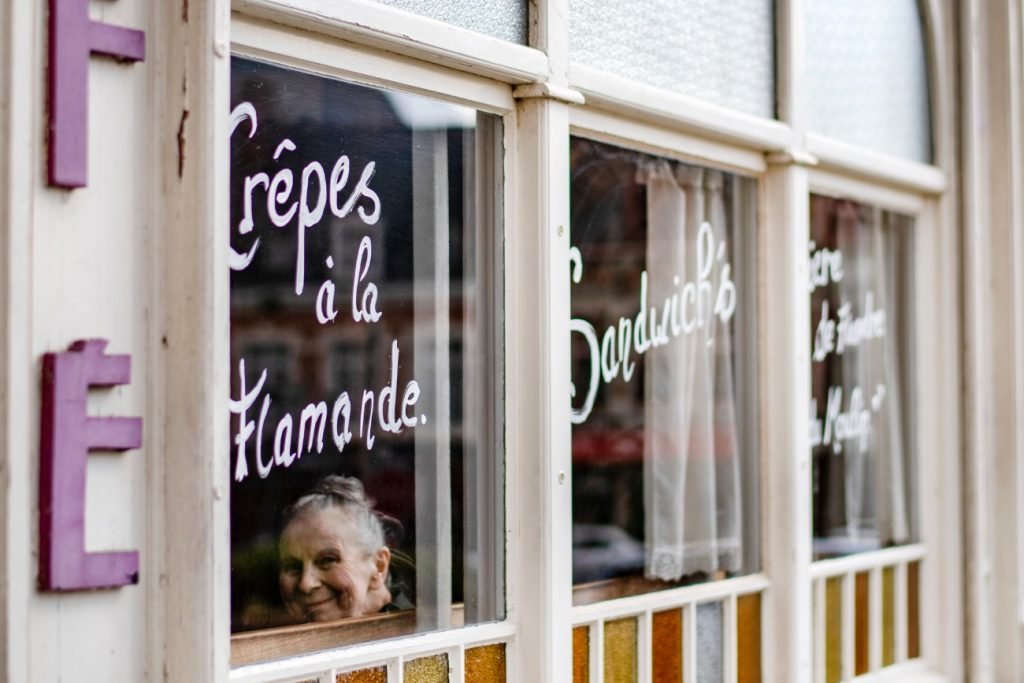 F
E
Crêpes
à la
Flamande.
Sandwich's
de Flandre